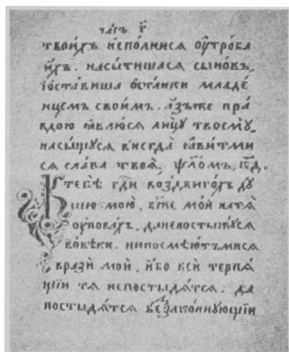 твои́хъ и҆спо́лнисѧ ѹ҆тро́ба
и҆́хъ. насы́тишасѧ сыно́въ.
и҆ѡ҆ста́виша ѡ҆ста́нки младе́
нцемъ свои́мъ. а҆́зъже пра́
вдою ꙗ҆влю́сѧ лицу̀ твоемꙋ̀.
насы́щусѧ внегда̀ ꙗ҆ви́тмисѧ
сѧ сла́ва твоѧ̀. ѱло́мъ, к҃д.
К тебѣ̀ гдⷭ҇и воздвиго́хъ дꙋ́
шꙋ мою̀, бж҃е мо́й натѧ̀
ѹ҆пова́хъ, данепостыжꙋ́сѧ
вовѣ́ки. нипосмѣю́тъмисѧ
врази̑ мои̑, и҆́бо вси̑ терпѧ́
щїи тѧ̀ непостыдѧ́тсѧ. да
постыдѧ́тсѧ беззако́ннꙋющїи